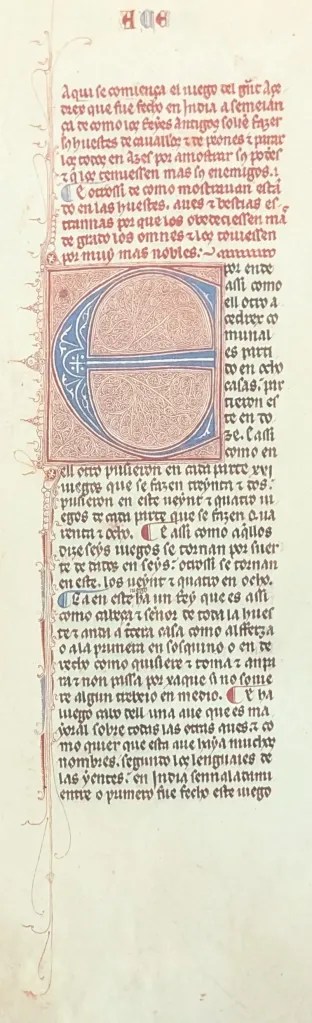 Aqui se comiença el iuego del grãt Açe
drex que fue fecho en India a semeian
ça de como los Reyes Antigos soliẽ fazer
sus huestes de cavallos ⁊ de peones ⁊ parar
los todos en Azes por amostrar so poder
⁊ q̃ los temiessen mas so enemigos.
E otrossi de como mostravan estã
do en las huestes. aves ⁊ bestias es
trannas por que los obedeciessen mã
de grado los omnes ⁊ los toviessen
por muy mas nobles.
E
por ende
assi como
ell otro a
cedrex co
munal
es parti
do en ocho
casas. par
tieron es
te en do
ze. E assi
como en
ell otro pusieron en cada parte XVI
iuegos que se fazen treynta ⁊ dos.
pusieron en este veynt ⁊ quatro iu
egos de cada parte que se fazen Qua
renta ⁊ ocho. E assi como aq̃llos
dize seys iuegos se tornan por suer
te de dados en seys: otrossi se tornan
en este. los veynt ⁊ quatro en ocho.
Ca en este iuego ha un Rey que es assi
como cabeça ⁊ sennor de toda la hues
te ⁊ anda a t̃cera casa como alfferza
o a la primera en sosquino o en de
recho como quisiere ⁊ toma ⁊ ampa
ra ⁊ non passa por xaque si no souie
re algun trebeio en medio. E ha
luego cabo dell una aue que es ma
yoral sobre todas las otras aues. ⁊ co
mo quier que esta aue haya muchos
nombres. segundo los lenguaies de
las yentes. en India sennaladami
entre o primero fue fecho este iuego